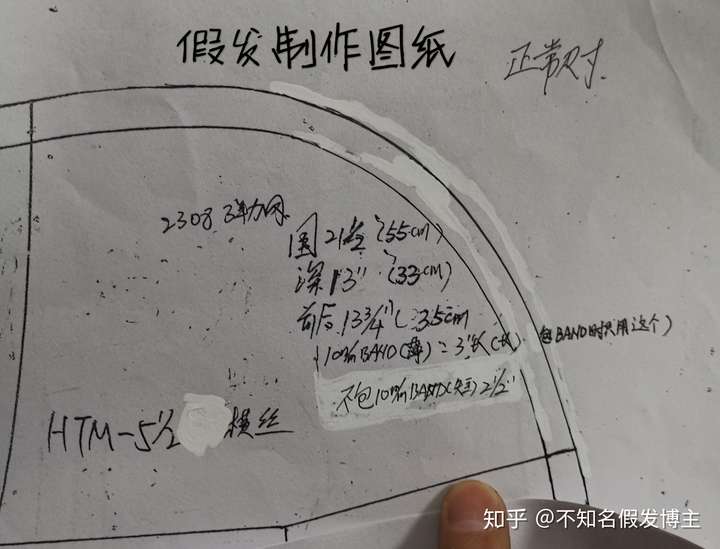 假发制作图纸
正常尺寸
2308 弹力网
围 21½" (55cm)
深 13" (33cm)
前后 13¾" (35cm
10m/m BAND(薄) = 3
包BAND时只用这个)
不包10m/m BAND 2½"
HTM-5½ 横丝
知乎 @不知名假发博主